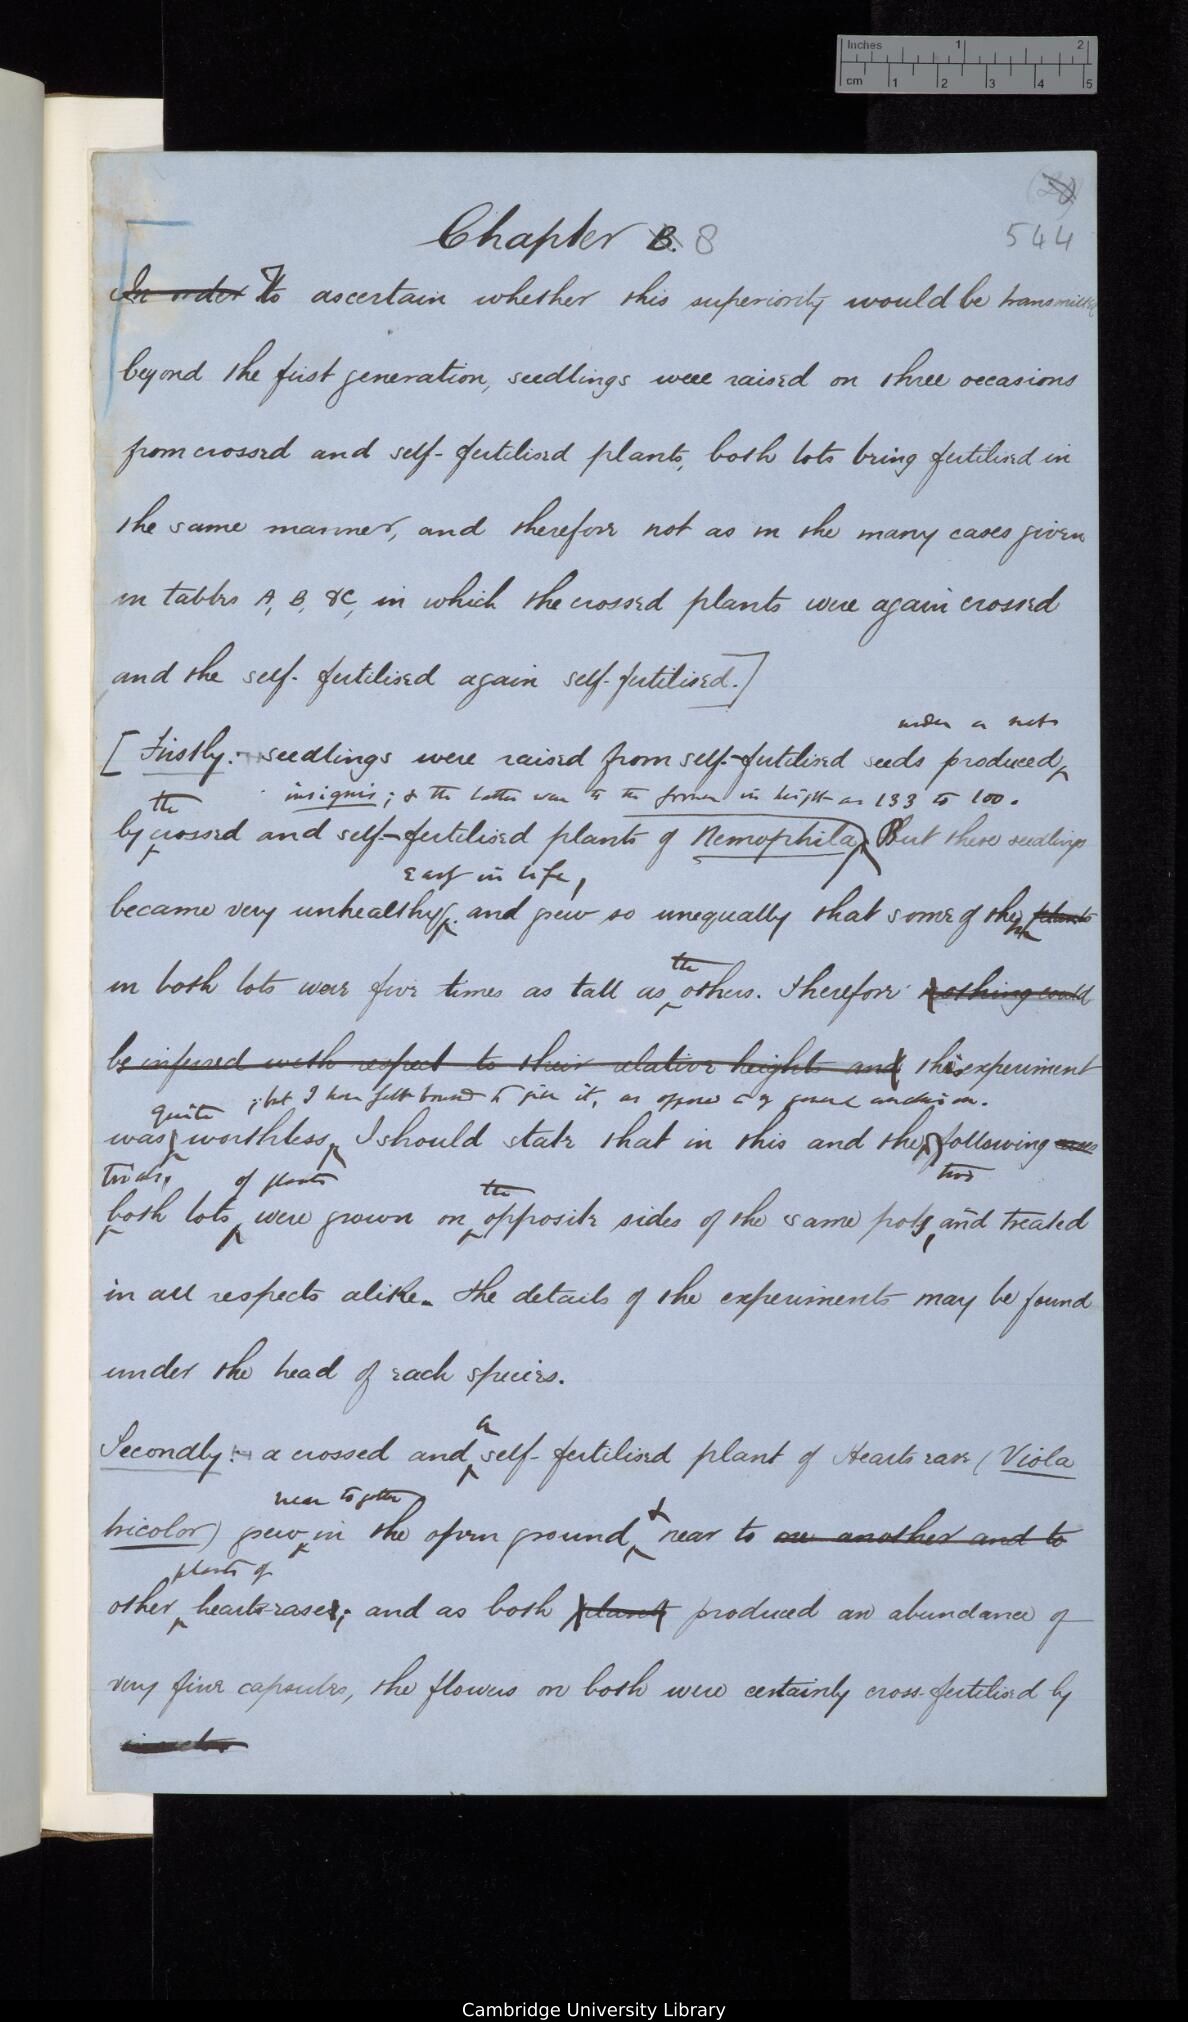 Inches 1 2
cm 1 2 3 4 5
(20)
544
Chapter B. 8
In order To ascertain whether this superiority would be transmitted
beyond the first generation, seedlings were raised on three occasions
from crossed and self-fertilised plants, both lots being fertilised in
the same manner, and therefore not as in the many cases given
in tables A, B, &C, in which the crossed plants were again crossed
and the self-fertilised again self-fertilised.]
under a net
[Firstly:- seedlings were raised from self-fertilised seeds produced
the insignis; & the latter was to the former in height as 133 to 100.
by crossed and self-fertilised plants of Nemophila. But these seedlings
early in life,
became very unhealthy, and grew so unequally that some of the plants
the
in both lots were five times as tall as others. Therefore nothing could
be inferred with respect to their relative heights and this experiment
quite ; but I have felt bound to give it, as opposed to my general conclusion.
was worthless. I should state that in this and the following cases
trials, of plants the two
both lots were grown on opposite sides of the same pots, and treated
in all respects alike. The details of the experiments may be found
under the head of each species.
a
Secondly:- a crossed and self-fertilised plant of Heartsease (Viola
near together &
tricolor) grew in the open ground near to one another and to
plants of
other heartsease; and as both plants produced an abundance of
very fine capsules, the flowers on both were certainly cross-fertilised by
insects
Cambridge University Library